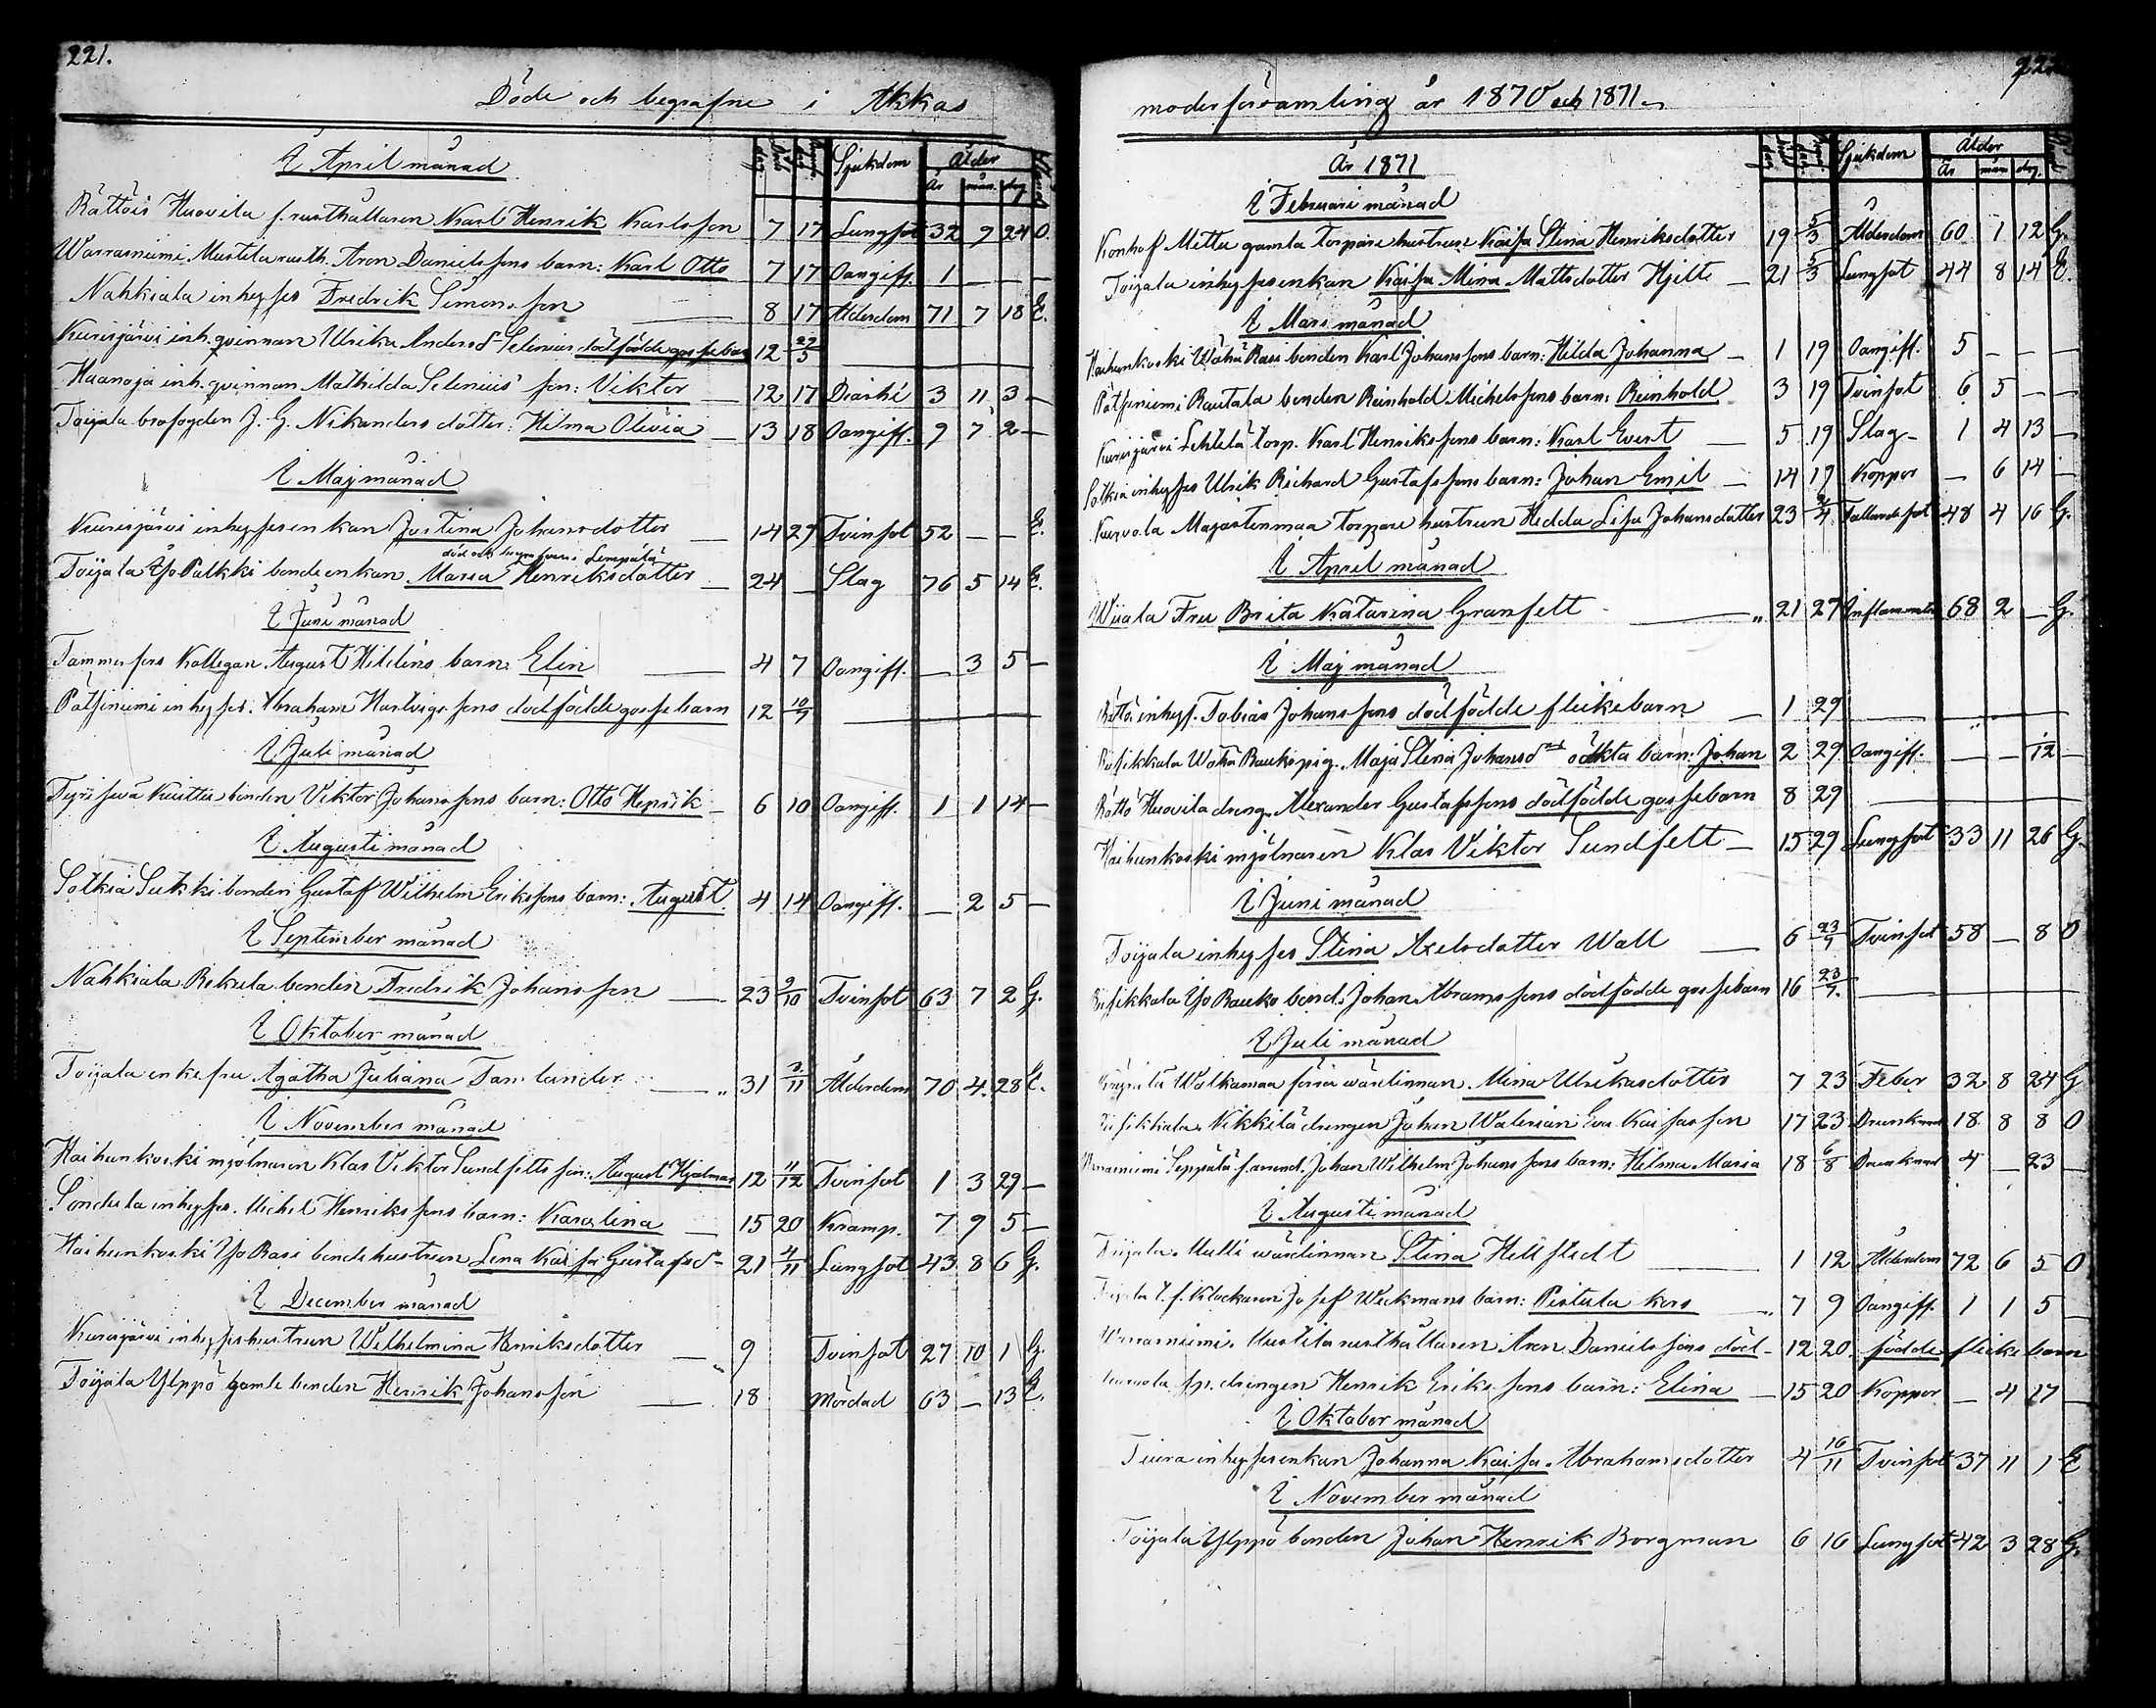 221.
Döde och begrafne i Akkas
I April månad
Sjukdom Ålder
År mån. dag
Rättöis Huovila f. rusthållaren Karl Henrik Karlsson 7 17 Lungsot 32 9 24 O.
Warrasniemi Mustila rusth. Aron Danielssons barn: Karl Otto 7 17 Oangiff. 1 — — —
Nahkiala inhyses Fredrik Simonsson 8 17 Ålderdom 71 7 18 E.
Kurisjärvi inh. qvinnan Ulrika Andersd. Selenius dödfödde gossebarn 12 29/5
Haanoja inh. qvinnan Mathilda Selenius' son: Viktor 12 17 Diarhé 3 11 3 —
Toijala brofogden J. G. Nikanders dotter: Hilma Olivia 13 18 Oangiff. 9 7 2 —
I Maj månad
Kurisjärvi inhysesenkan Justina Johansdotter 14 29 Tvinsot 52 — — E.
död och begrafven i Lempälä
Toijala Yli Pulkki bondeenkan Maria Henriksdotter 24 — Slag 76 5 14 E.
I Juni månad
Tammerfors Kollegan August Hildéns barn: Elin 4 7 Oangiff. — 3 5 —
Pätsiniemi inhyses Abraham Hartvigssons dödfödde gossebarn 12 10/7
I Juli månad
Kuittis bonden Viktor Johanssons barn: Otto Henrik 6 10 Oangiff. 1 1 14 —
I Augusti månad
Sotkia Sukki bonden Gustaf Wilhelm Erikssons barn: August 4 14 Oangiff. — 2 5 —
I September månad
Nahkiala Rekula bonden Fredrik Johansson 23 9/10 Tvinsot 63 7 2 G.
I Oktober månad
Toijala enkefru Agatha Juliana Tamlander 31 /11 Ålderdom 70 4 28 E.
I November månad
Haihunkoski mjölnaren Klas Viktor Sundfelts son: August Hjalmar 12 11/12 Tvinsot 1 3 29 —
Sondula inhyses Michel Henrikssons barn: Karolina 15 20 Kramp. 7 9 5 —
Haihunkoski Yli Rasi bondehustrun Lena Kaisa Gustafsd. 21 4/11 Lungsot 43 8 6 G.
I December månad
Kurisjärvi inhyseshustrun Wilhelmina Henriksdotter 9 Tvinsot 27 10 1 G.
Toijala Ylppö gamle bonden Henrik Johansson 18 Mördad 63 — 13 E.
moderförsamling år 1870 och 1871.
År 1871
Sjukdom Ålder
År mån dag.
I Februari månad
Konhof Mittu gamla torpare hustrun Kaisa Stina Henriksdotter 19 5/3 Ålderdom 60 1 12 G.
Toijala inhysesenkan Kaisa Mina Mattsdotter Hjelte 21 5/3 Lungsot 44 8 14 E.
I Mars månad
Haihunkoski Wähä Rasi bonden Karl Johanssons barn: Hilda Johanna 1 19 Oangiff. 5 — — —
Pätsiniemi Rautala bonden Reinhold Michelssons barn: Reinhold 3 19 Tvinsot 6 5 — —
Kurisjärvi Lehtelä torp. Karl Henrikssons barn: Karl Evert 5 19 Slag 1 4 13 —
Sotkia inhyses Ulrik Richard Gustafssons barn: Johan Emil 14 19 Koppor — 6 14 —
Kurvola Majastenmaa torpare hustrun Hedda Lisa Johansdotter 23 2/4 Fallandesot 48 4 16 G.
I April månad
Wiiala Fru Brita Katarina Granfelt 21 27 Inflammation 68 2 — G.
I Maj månad
Rättö inhys. Tobias Johanssons dödfödde flickebarn 1 29
Wähä Rauko pig. Maja Stina Johansd. oäkta barn: Johan 2 29 Oangiff. — — 12 —
Rättö Huovila dreng. Alexander Gustafssons dödfödde gossebarn 8 29
Haihunkoski mjölnaren Klas Viktor Sundfelt 15 29 Lungsot 33 11 26 G.
I Juni månad
Toijala inhyses Stina Axelsdotter Wall 6 23/7 Tvinsot 58 — 8 O
Yli Rauko bond. Johan Abramssons dödfödde gossebarn 16 23/7.
I Juli månad
Walkamaa förra wärdinnan Mina Ulrikasdotter 7 23 Feber 32 8 24 G
Nikkilä drengen Johan Walerian Eva Kaisasson 17 23 Drunknad 18 8 8 O
Seppälä Johan Wilhelm Johanssons barn: Helma Maria 18 6/8 Drunknad 4 — 23 —
I Augusti månad
Toijala Multi wärdinnan Stina Hellstedt 1 12 Ålderdom 72 6 5 O
Klockaren Josef Weckmans barn: 7 9 Oangiff. 1 1 5 —
Warrasniemi Mustila rusthållaren Aron Danielssons död- 12 20 födde flickebarn
drengen Henrik Erikssons barn: Elina 15 20 Koppor — 4 17 —
I Oktober månad
inhysesenkan Johanna Kaisa Abrahamsdotter 4 16/11 Tvinsot 37 11 1 E
I November månad
Toijala Ylppö bonden Johan Henrik Borgman 6 16 Lungsot 42 3 28 G.